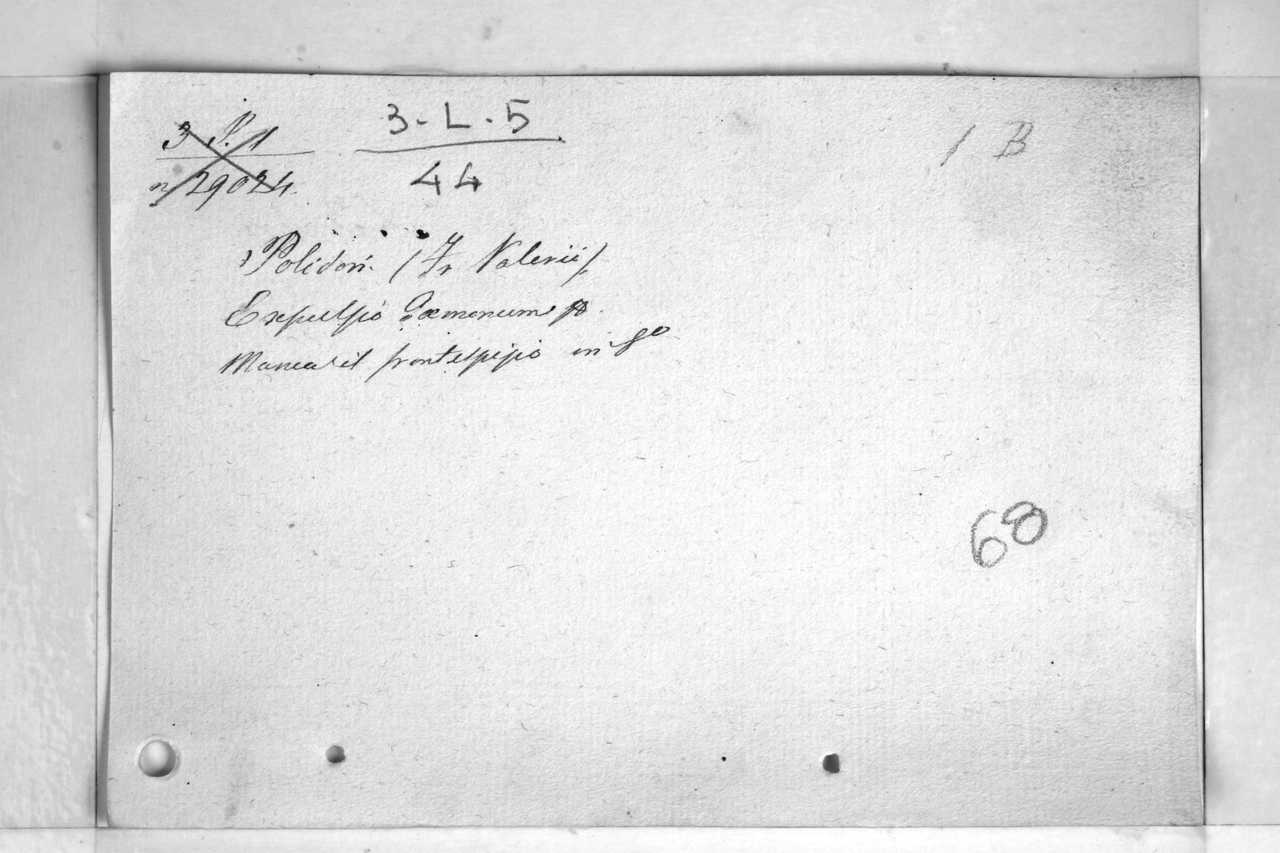 3 P. 1
n 29024
3-L-5
44
1 B
Polidori (Fr Valerii)
Expulsio Dæmonum
Manca il frontespizio in 8o
68